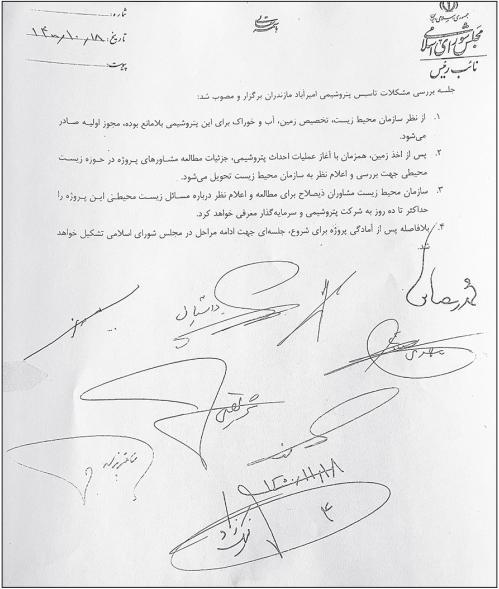 باسمه تعالی
جمهوری اسلامی ایران
مجلس شورای اسلامی
نائب رئیس
شماره:
تاریخ: ۱۴۰۰/۱۰/۱۸
پیوست:
جلسه بررسی مشکلات تاسیس پتروشیمی امیرآباد مازندران برگزار و مصوب شد:
۱. از نظر سازمان محیط زیست، تخصیص زمین، آب و خوراک برای این پتروشیمی بلامانع بوده، مجوز اولیه صادر
می‌شود.
۲. پس از اخذ زمین، همزمان با آغاز عملیات احداث پتروشیمی، جزئیات مطالعه مشاورهای پروژه در حوزه زیست
محیطی جهت بررسی و اعلام نظر به سازمان محیط زیست تحویل می‌شود.
۳. سازمان محیط زیست مشاوران ذیصلاح برای مطالعه و اعلام نظر درباره مسائل زیست محیطی این پروژه را
حداکثر تا ده روز به شرکت پتروشیمی و سرمایه‌گذار معرفی خواهد کرد.
۴. بلافاصله پس از آمادگی پروژه برای شروع، جلسه‌ای جهت ادامه مراحل در مجلس شورای اسلامی تشکیل خواهد
شد.
مهدی